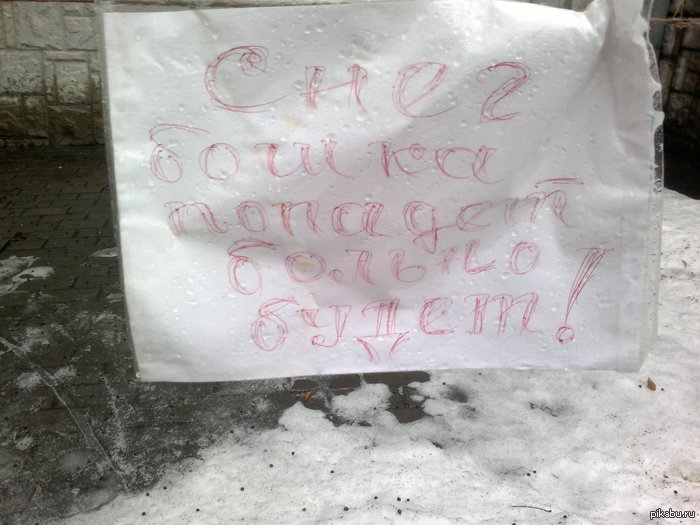 Снег
бошка
попадет
больно
будет!
pikabu.ru